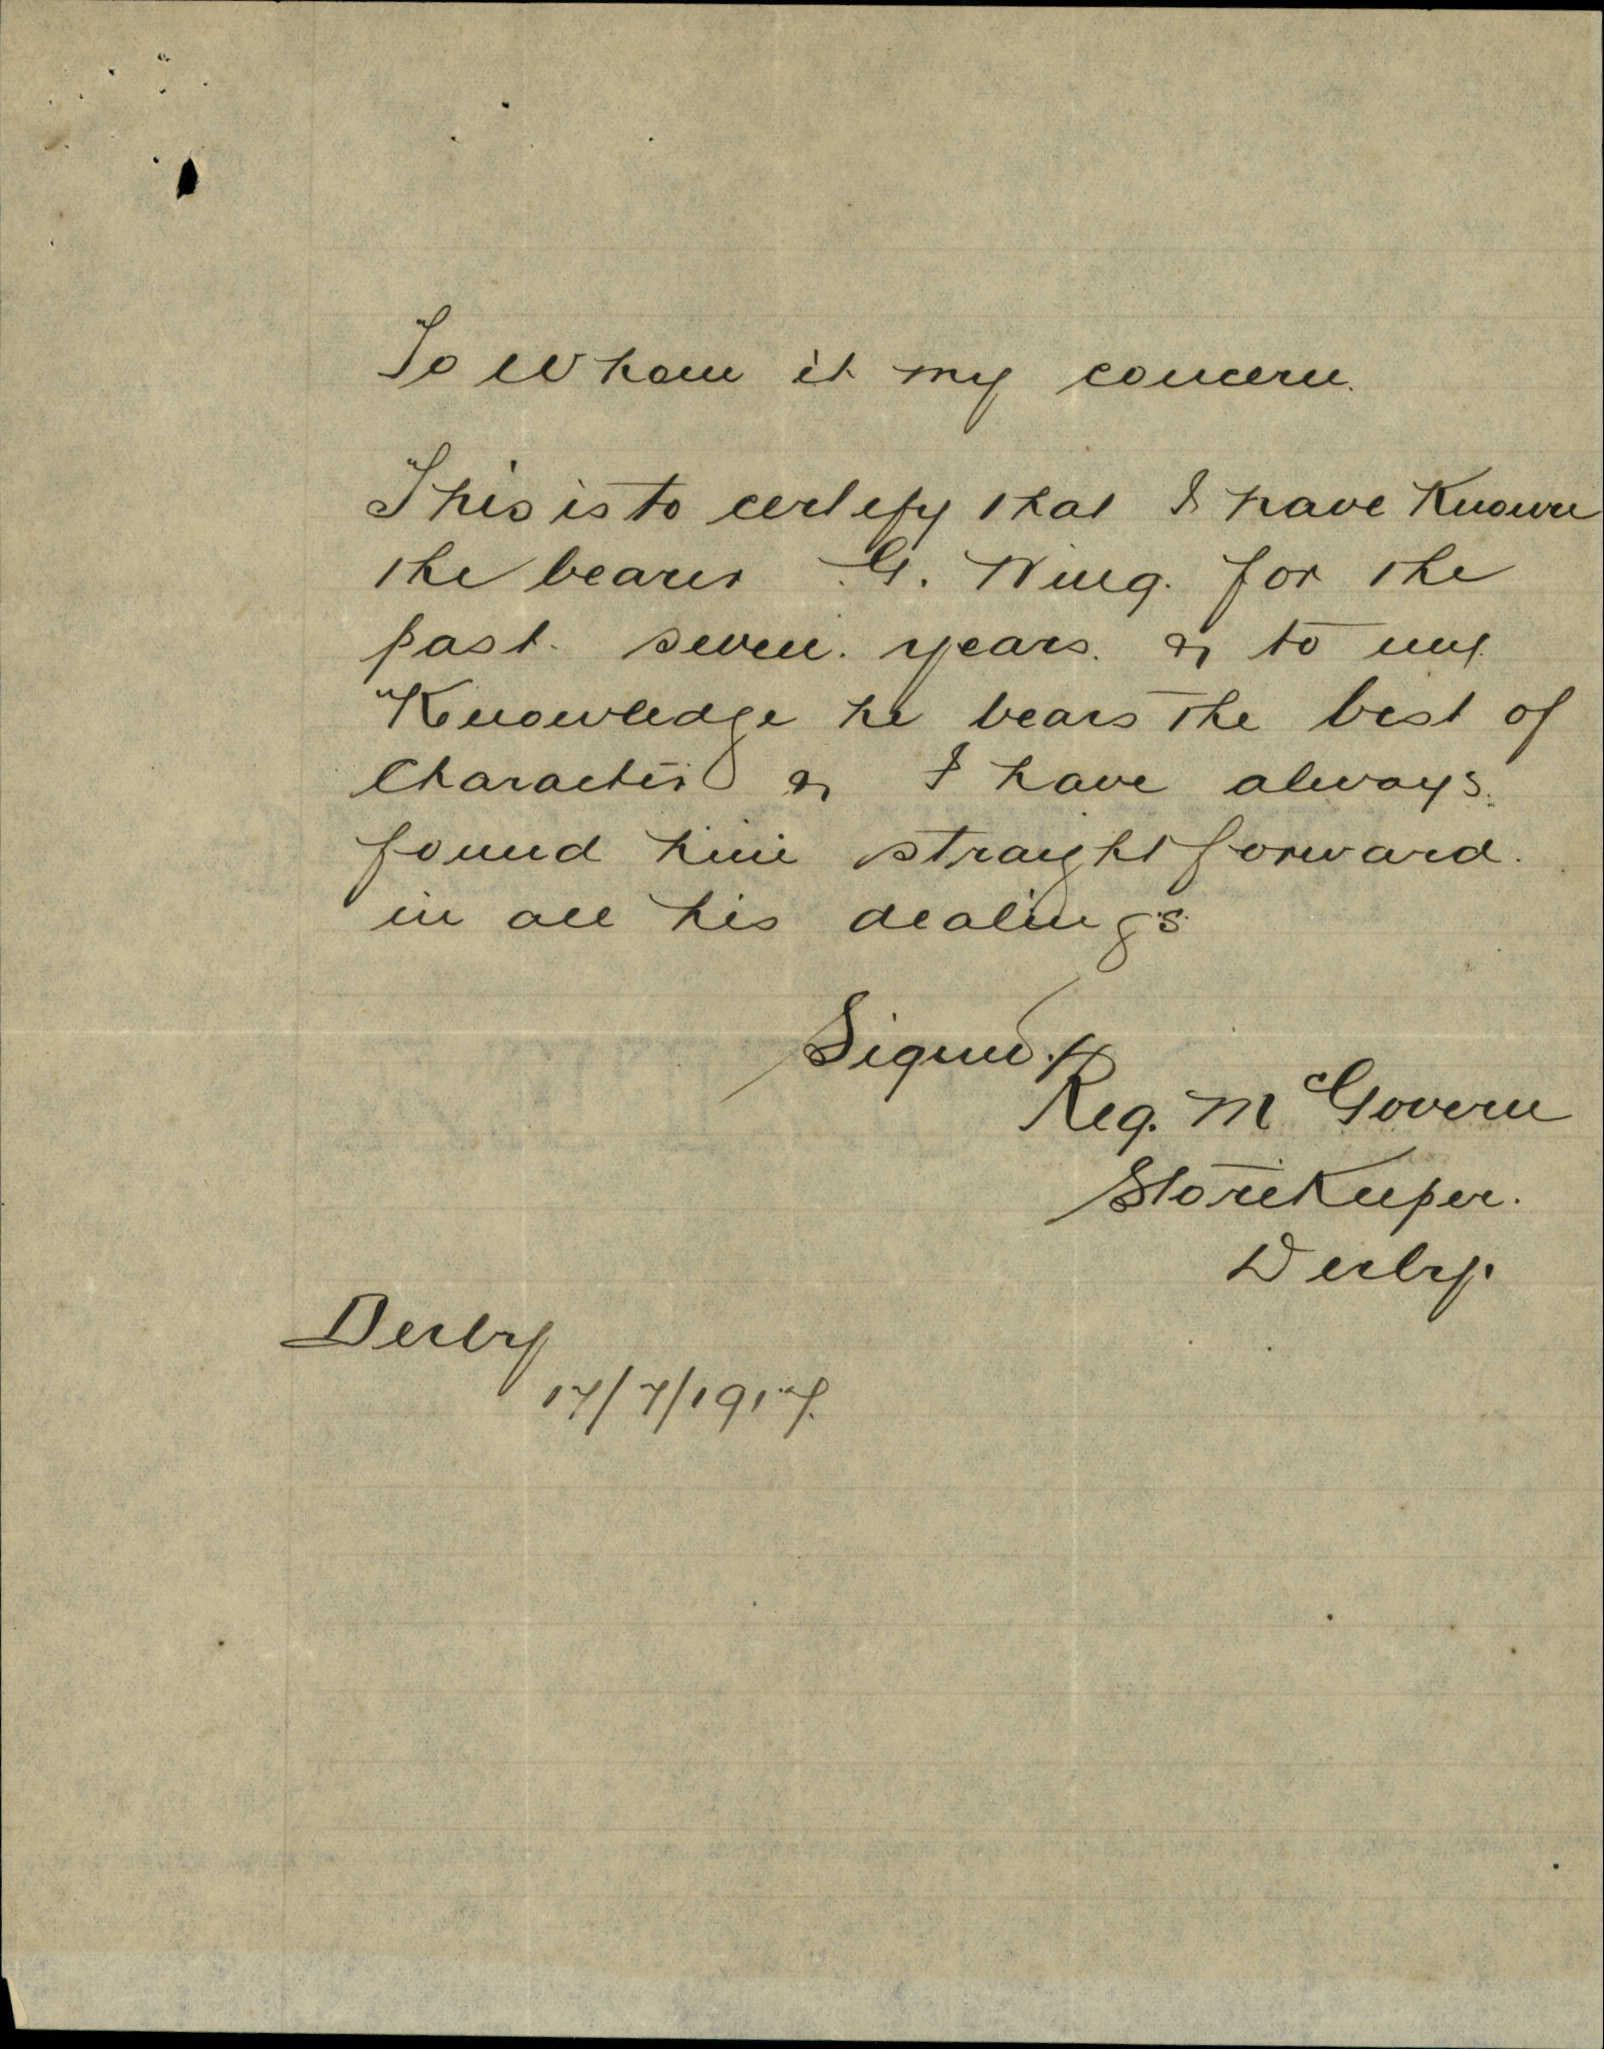 To Whom it my concern.
This is to certify that I have Known
the bearer G. Wing. for the
past. seven. years. & to my
Knowledge he bears the best of
Character & I have always.
found him straight forward.
in all his dealings
Signed.
Reg. McGovern
StoreKeeper.
Derby.
Derby
17/7/1917.